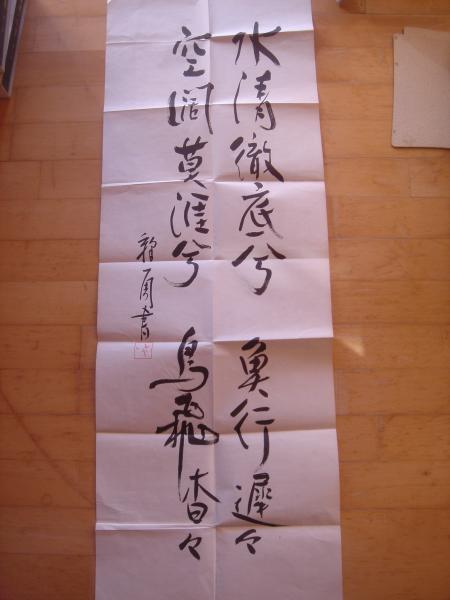 水清徹底兮 魚行遲々
空闊莫涯兮 鳥飛杳々